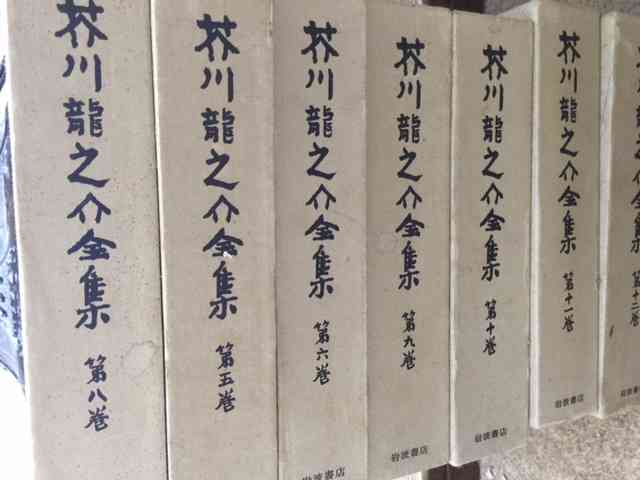 芥川龍之介全集 第八巻
芥川龍之介全集 第五巻
芥川龍之介全集 第六巻
岩波書店
芥川龍之介全集 第九巻
岩波書店
芥川龍之介全集 第十巻
岩波書店
芥川龍之介全集 第十一巻
岩波書店
第十二巻
岩波書